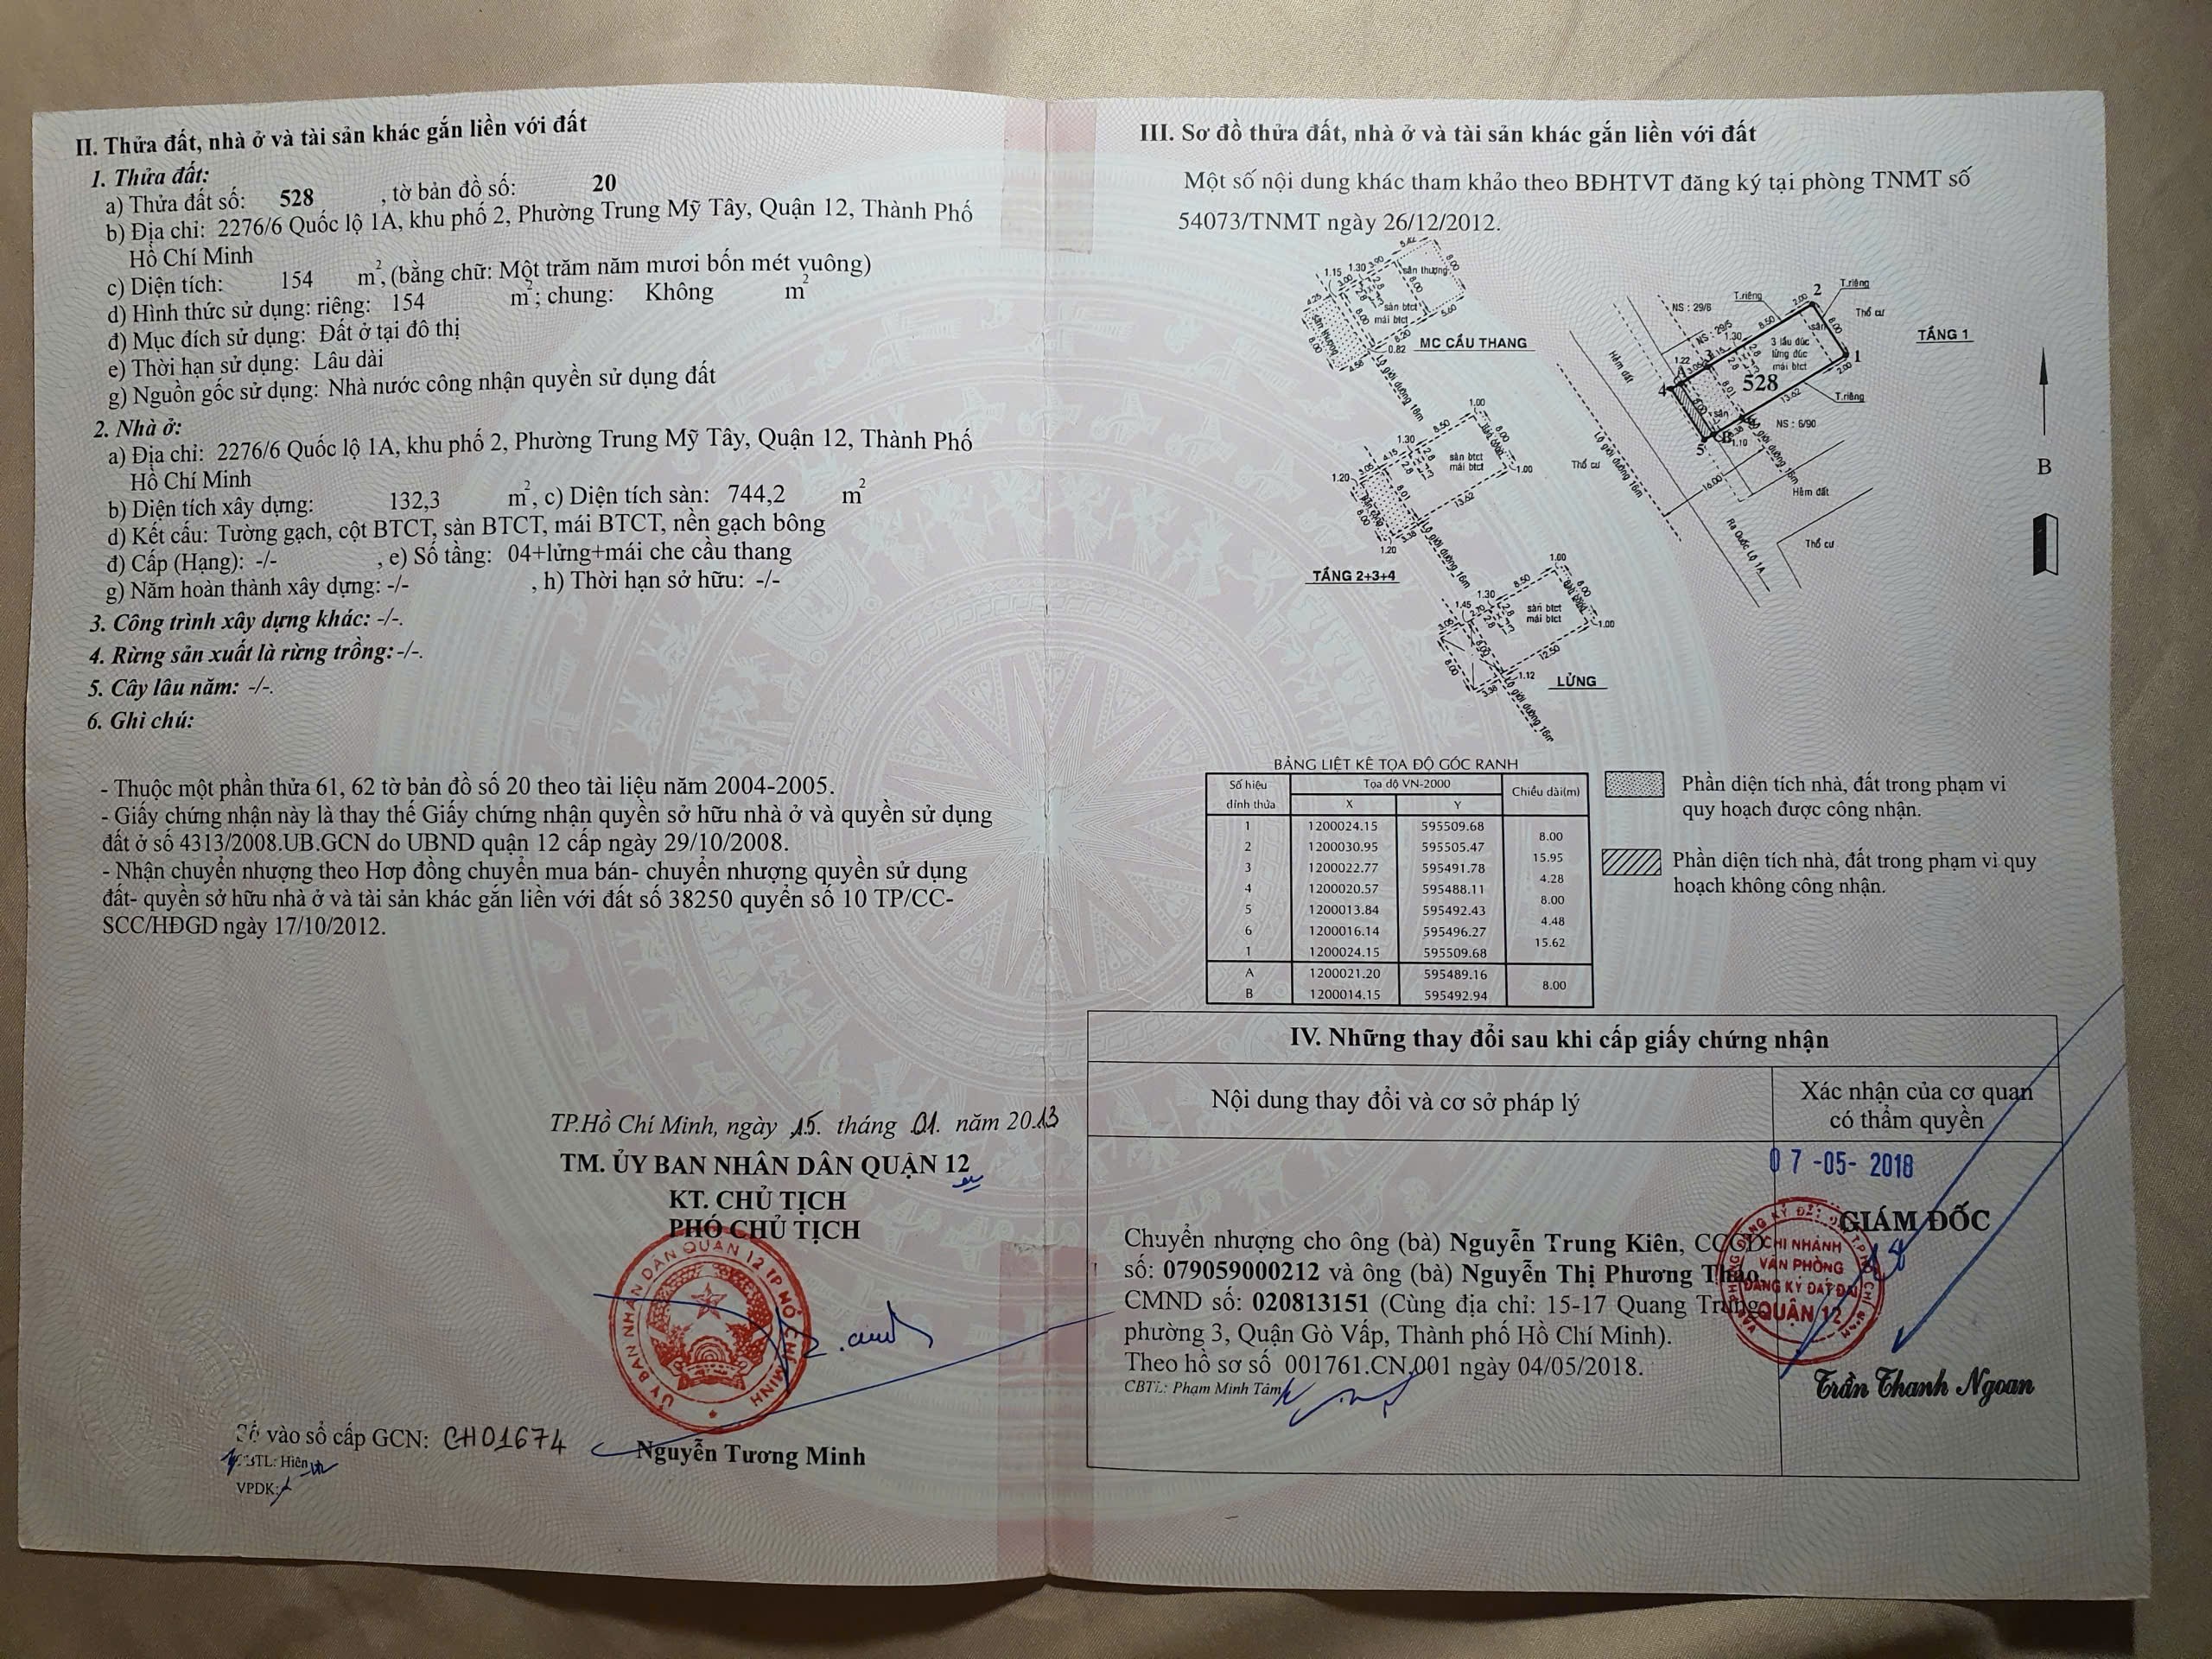 II. Thửa đất, nhà ở và tài sản khác gắn liền với đất
1. Thửa đất:
a) Thửa đất số: 528 , tờ bản đồ số: 20
b) Địa chỉ: 2276/6 Quốc lộ 1A, khu phố 2, Phường Trung Mỹ Tây, Quận 12, Thành Phố
Hồ Chí Minh
c) Diện tích: 154 m², (bằng chữ: Một trăm năm mươi bốn mét vuông)
d) Hình thức sử dụng: riêng: 154 m²; chung: Không m²
đ) Mục đích sử dụng: Đất ở tại đô thị
e) Thời hạn sử dụng: Lâu dài
g) Nguồn gốc sử dụng: Nhà nước công nhận quyền sử dụng đất
2. Nhà ở:
a) Địa chỉ: 2276/6 Quốc lộ 1A, khu phố 2, Phường Trung Mỹ Tây, Quận 12, Thành Phố
Hồ Chí Minh
b) Diện tích xây dựng: 132,3 m², c) Diện tích sàn: 744,2 m²
d) Kết cấu: Tường gạch, cột BTCT, sàn BTCT, mái BTCT, nền gạch bông
đ) Cấp (Hạng): -/- , e) Số tầng: 04+lửng+mái che cầu thang
g) Năm hoàn thành xây dựng: -/- , h) Thời hạn sở hữu: -/-
3. Công trình xây dựng khác: -/-.
4. Rừng sản xuất là rừng trồng: -/-.
5. Cây lâu năm: -/-.
6. Ghi chú:
- Thuộc một phần thửa 61, 62 tờ bản đồ số 20 theo tài liệu năm 2004-2005.
- Giấy chứng nhận này là thay thế Giấy chứng nhận quyền sở hữu nhà ở và quyền sử dụng
đất ở số 4313/2008.UB.GCN do UBND quận 12 cấp ngày 29/10/2008.
- Nhận chuyển nhượng theo Hơp đồng chuyển mua bán- chuyển nhượng quyền sử dụng
đất- quyền sở hữu nhà ở và tài sản khác gắn liền với đất số 38250 quyển số 10 TP/CC-
SCC/HĐGD ngày 17/10/2012.
TP.Hồ Chí Minh, ngày 15. tháng 01. năm 2013
TM. ỦY BAN NHÂN DÂN QUẬN 12
KT. CHỦ TỊCH
PHÓ CHỦ TỊCH
ỦY BAN NHÂN DÂN QUẬN 12 TP HỒ CHÍ MINH
Nguyễn Tương Minh
Số vào sổ cấp GCN: CH01674
CBTL: Hiên
VPDK:
III. Sơ đồ thửa đất, nhà ở và tài sản khác gắn liền với đất
Một số nội dung khác tham khảo theo BĐHTVT đăng ký tại phòng TNMT số
54073/TNMT ngày 26/12/2012.
5.42
8.00
sân thượng
1.15 1.30 3.90
4.25
sân thượng
8.00
sàn btct
mái btct
5.60
8.20
0.82
4.58
MC CẦU THANG
Lộ giới đường 16m
1.00
8.50
8.00
1.30
4.15
3.05
1.20
sàn btct
mái btct
1.00
8.01
13.62
8.00
3.38
1.20
TẦNG 2+3+4
Lộ giới đường 16m
1.00
8.50
8.00
1.30
1.45
3.05
sàn btct
mái btct
1.00
12.50
8.00
1.12
3.38
LỬNG
Lộ giới đường 16m
NS : 29/6
T.riêng
2
T.riêng
2.00
8.50
Thổ cư
NS : 29/5
1.30
sân
8.00
TẦNG 1
3 lầu đúc
lửng đúc
mái btct
1
1.22
3.05
4
528
8.01
2.00
13.62
T.riêng
sân
NS : 6/90
5
B
1.10
Hẻm đất
Lộ giới đường 16m
Thổ cư
16.00
Lộ giới đường 16m
Hẻm đất
Ra Quốc Lộ 1A
Thổ cư
B
BẢNG LIỆT KÊ TỌA ĐỘ GÓC RANH
Số hiệu đỉnh thửa Tọa độ VN-2000 Chiều dài(m)
X Y
1 1200024.15 595509.68
8.00
2 1200030.95 595505.47
15.95
3 1200022.77 595491.78
4.28
4 1200020.57 595488.11
8.00
5 1200013.84 595492.43
4.48
6 1200016.14 595496.27
15.62
1 1200024.15 595509.68
A 1200021.20 595489.16
8.00
B 1200014.15 595492.94
Phần diện tích nhà, đất trong phạm vi
quy hoạch được công nhận.
Phần diện tích nhà, đất trong phạm vi quy
hoạch không công nhận.
IV. Những thay đổi sau khi cấp giấy chứng nhận
Nội dung thay đổi và cơ sở pháp lý
Xác nhận của cơ quan
có thẩm quyền
07 -05- 2018
GIÁM ĐỐC
Chuyển nhượng cho ông (bà) Nguyễn Trung Kiên, CCCD
số: 079059000212 và ông (bà) Nguyễn Thị Phương Thảo,
CMND số: 020813151 (Cùng địa chỉ: 15-17 Quang Trung,
phường 3, Quận Gò Vấp, Thành phố Hồ Chí Minh).
Theo hồ sơ số 001761.CN.001 ngày 04/05/2018.
CBTL: Phạm Minh Tâm
CHI NHÁNH
VĂN PHÒNG
ĐĂNG KÝ ĐẤT ĐAI
QUẬN 12
Trần Thanh Ngoan